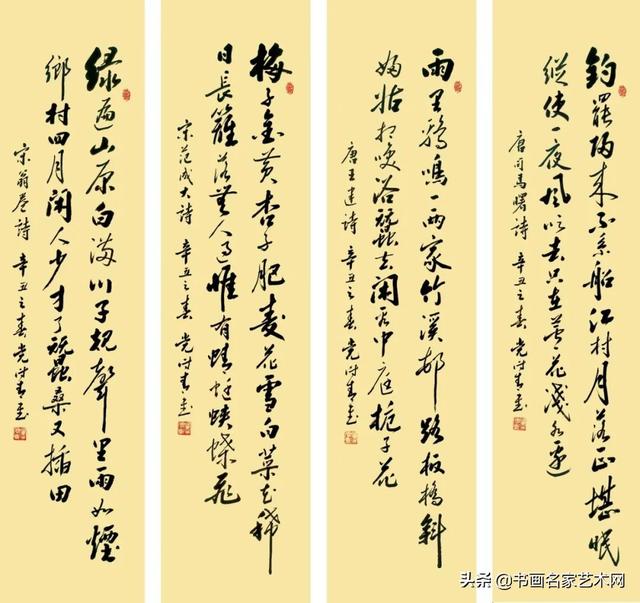 钓罷歸来不系船江村月落正堪眠
縱使一夜風吹去只在蘆花淺水邊
唐司馬曙詩 辛丑之春
雨里鷄鳴一兩家竹溪邨路板橋斜
婦姑相喚浴蠶去閑看中庭栀子花
唐王建詩 辛丑之春
梅子金黄杏子肥麦花雪白菜花稀
日長籬落無人過惟有蜻蜓蛺蝶飛
宋范成大詩 辛丑之春
緑遍山原白满川子規聲里雨如煙
鄉村四月閑人少才了蠶桑又插田
宋翁卷詩 辛丑之春
头条 @书画名家艺术网